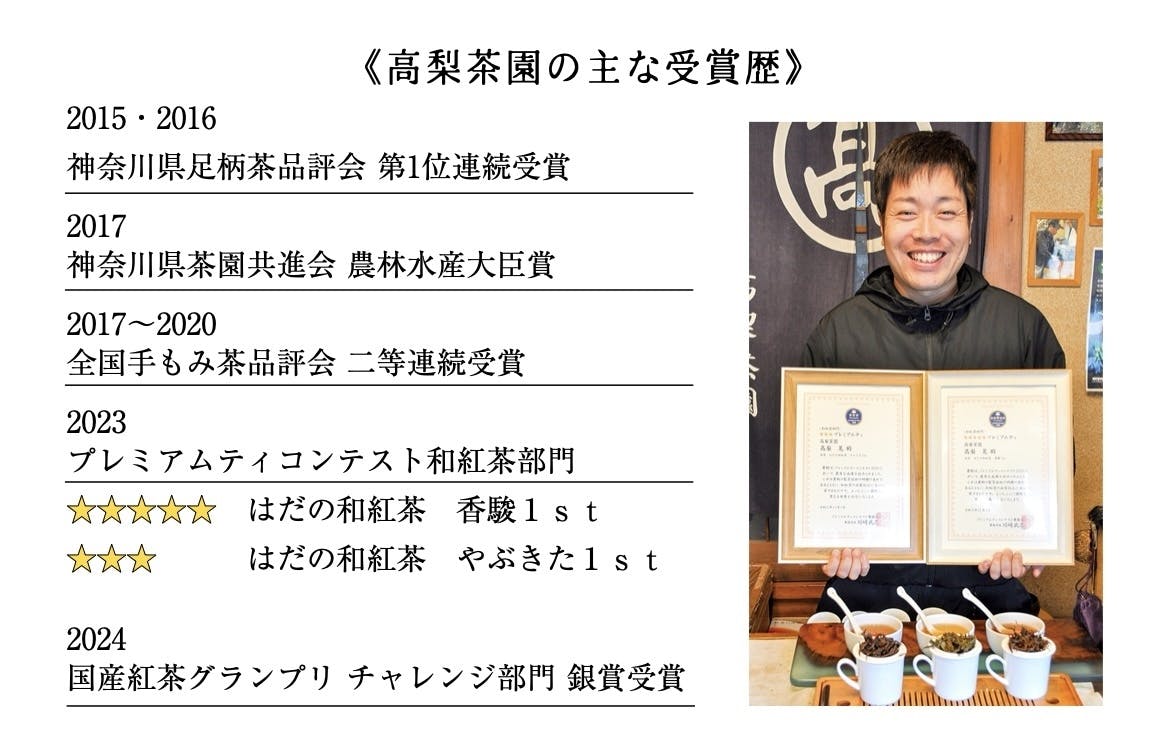 《高梨茶園の主な受賞歴》
2015・2016
神奈川県足柄茶品評会 第1位連続受賞
2017
神奈川県茶園共進会 農林水産大臣賞
2017～2020
全国手もみ茶品評会 二等連続受賞
2023
プレミアムティコンテスト和紅茶部門
★★★★★ はだの和紅茶　香駿１ｓｔ
★★★ はだの和紅茶　やぶきた１ｓｔ
2024
国産紅茶グランプリ チャレンジ部門 銀賞受賞
高
茶園
プレミアムティ
高梨茶園
プレミアムティ
高梨茶園